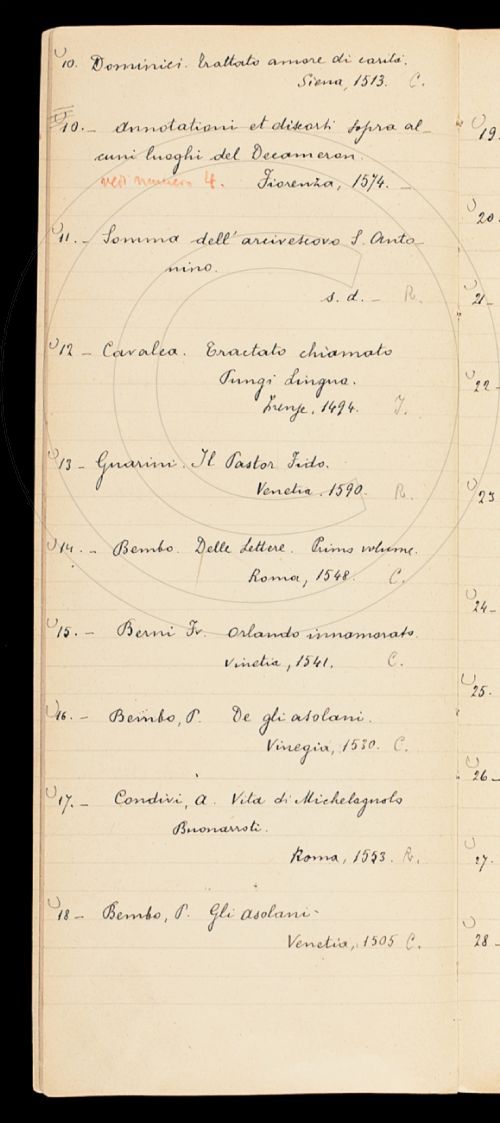 10. Dominici. Trattato amore di carità.
Siena, 1513. C.
10. - Annotationi et discorsi sopra al-
cuni luoghi del Decameron.
vedi numero 4. Fiorenza, 1574. -
11. - Somma dell' arcivescovo S. Anto-
nino.
s. d. - R.
12 - Cavalca. Tractato chiamato
Pungi Lingua.
Firenze, 1494. I.
13 - Guarini. Il Pastor Fido.
Venetia. 1590. R.
14. - Bembo. Delle Lettere. Primo volume.
Roma, 1548. C.
15. - Berni Fr. Orlando innamorato.
Vinetia, 1541. C.
16. - Bembo, P. De gli asolani.
Vinegia, 1530. C.
17. - Condivi, A. Vita di Michelagnolo
Buonarroti.
Roma, 1553. R.
18 - Bembo, P. Gli asolani -
Venetia, 1505 C.
19.
20.
21-
22-
23
24-
25.
26-
27.
28-